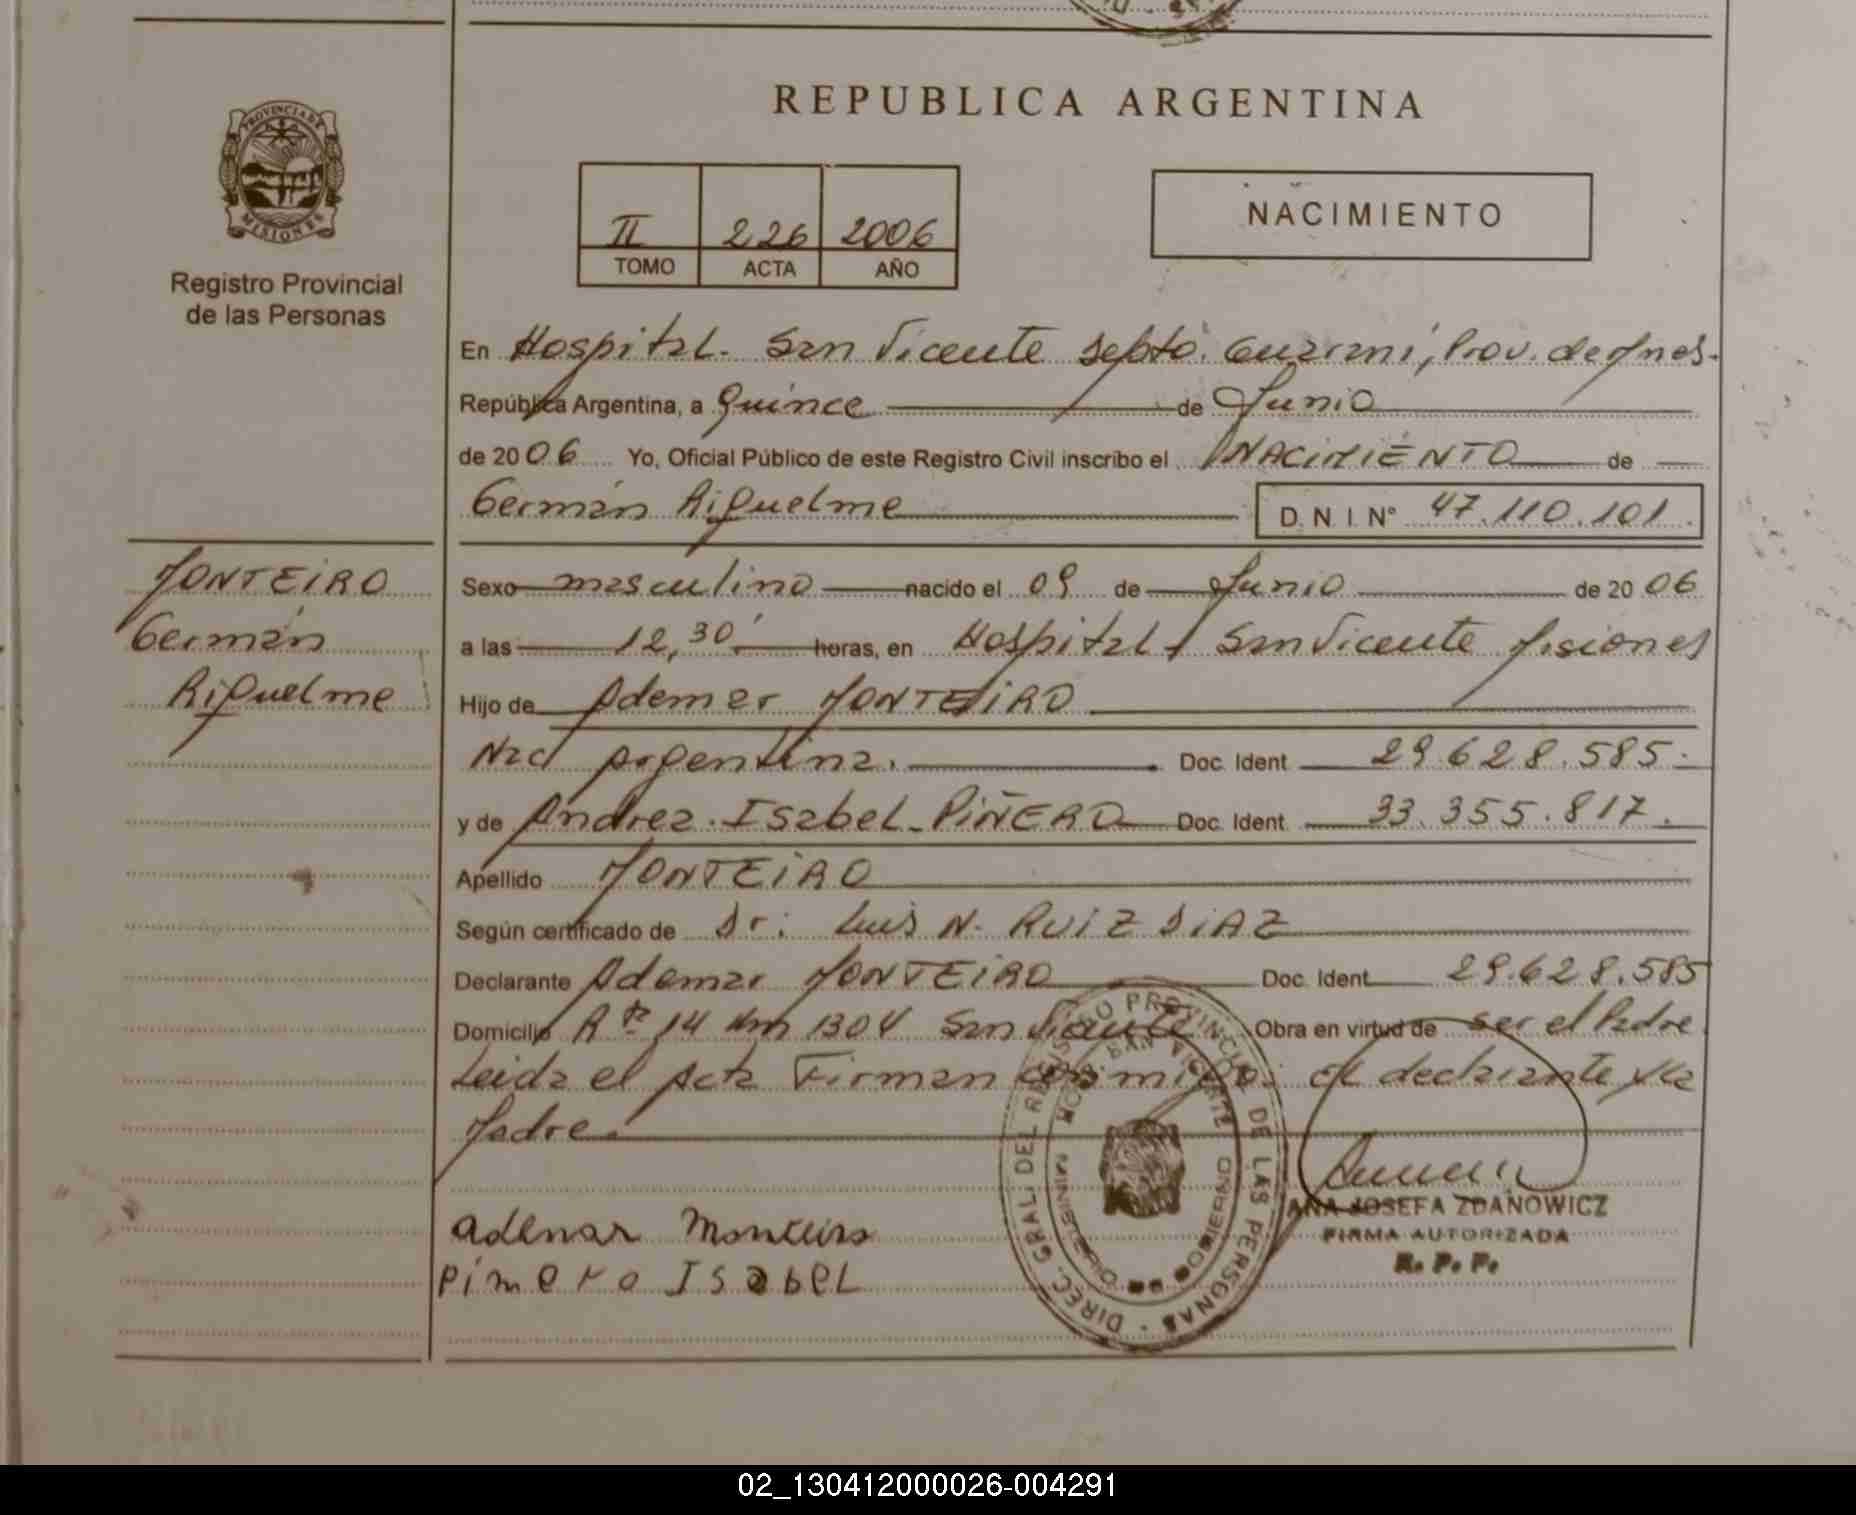 REPUBLICA ARGENTINA
PROVINCIA DE
MISIONES
Registro Provincial
de las Personas
II 226 2006
TOMO ACTA AÑO
NACIMIENTO
En Hospital - San Vicente Depto. Guaraní, Prov. de Mnes.
República Argentina, a Quince de Junio
de 2006 Yo, Oficial Público de este Registro Civil inscribo el NACIMIENTO de
Germán Riquelme D.N.I. Nº 47.110.101.
MONTEIRO
Germán
Riquelme
Sexo masculino nacido el 09 de Junio de 2006
a las 12,30 horas, en Hospital - San Vicente Misiones
Hijo de Ademar MONTEIRO
Nac Argentina. Doc. Ident 29.628.585.
y de Andrea Isabel - PIÑERO Doc. Ident 33.355.817.
Apellido MONTEIRO
Según certificado de Dr: Luis N. RUIZ DIAZ
Declarante Ademar MONTEIRO Doc. Ident. 29.628.585
Domicilio Rta 14 Km 1304 San Vicente Obra en virtud de ser el Padre
Leida el Acta Firman conmigo: el declarante y la
Madre.
DIREC. GRAL. DEL REGISTRO PROVINCIAL DE LAS PERSONAS
SAN VICENTE
ANA JOSEFA ZDANOWICZ
FIRMA AUTORIZADA
R. P. P.
Ademar Monteiro
Pimero Isabel
02_130412000026-004291